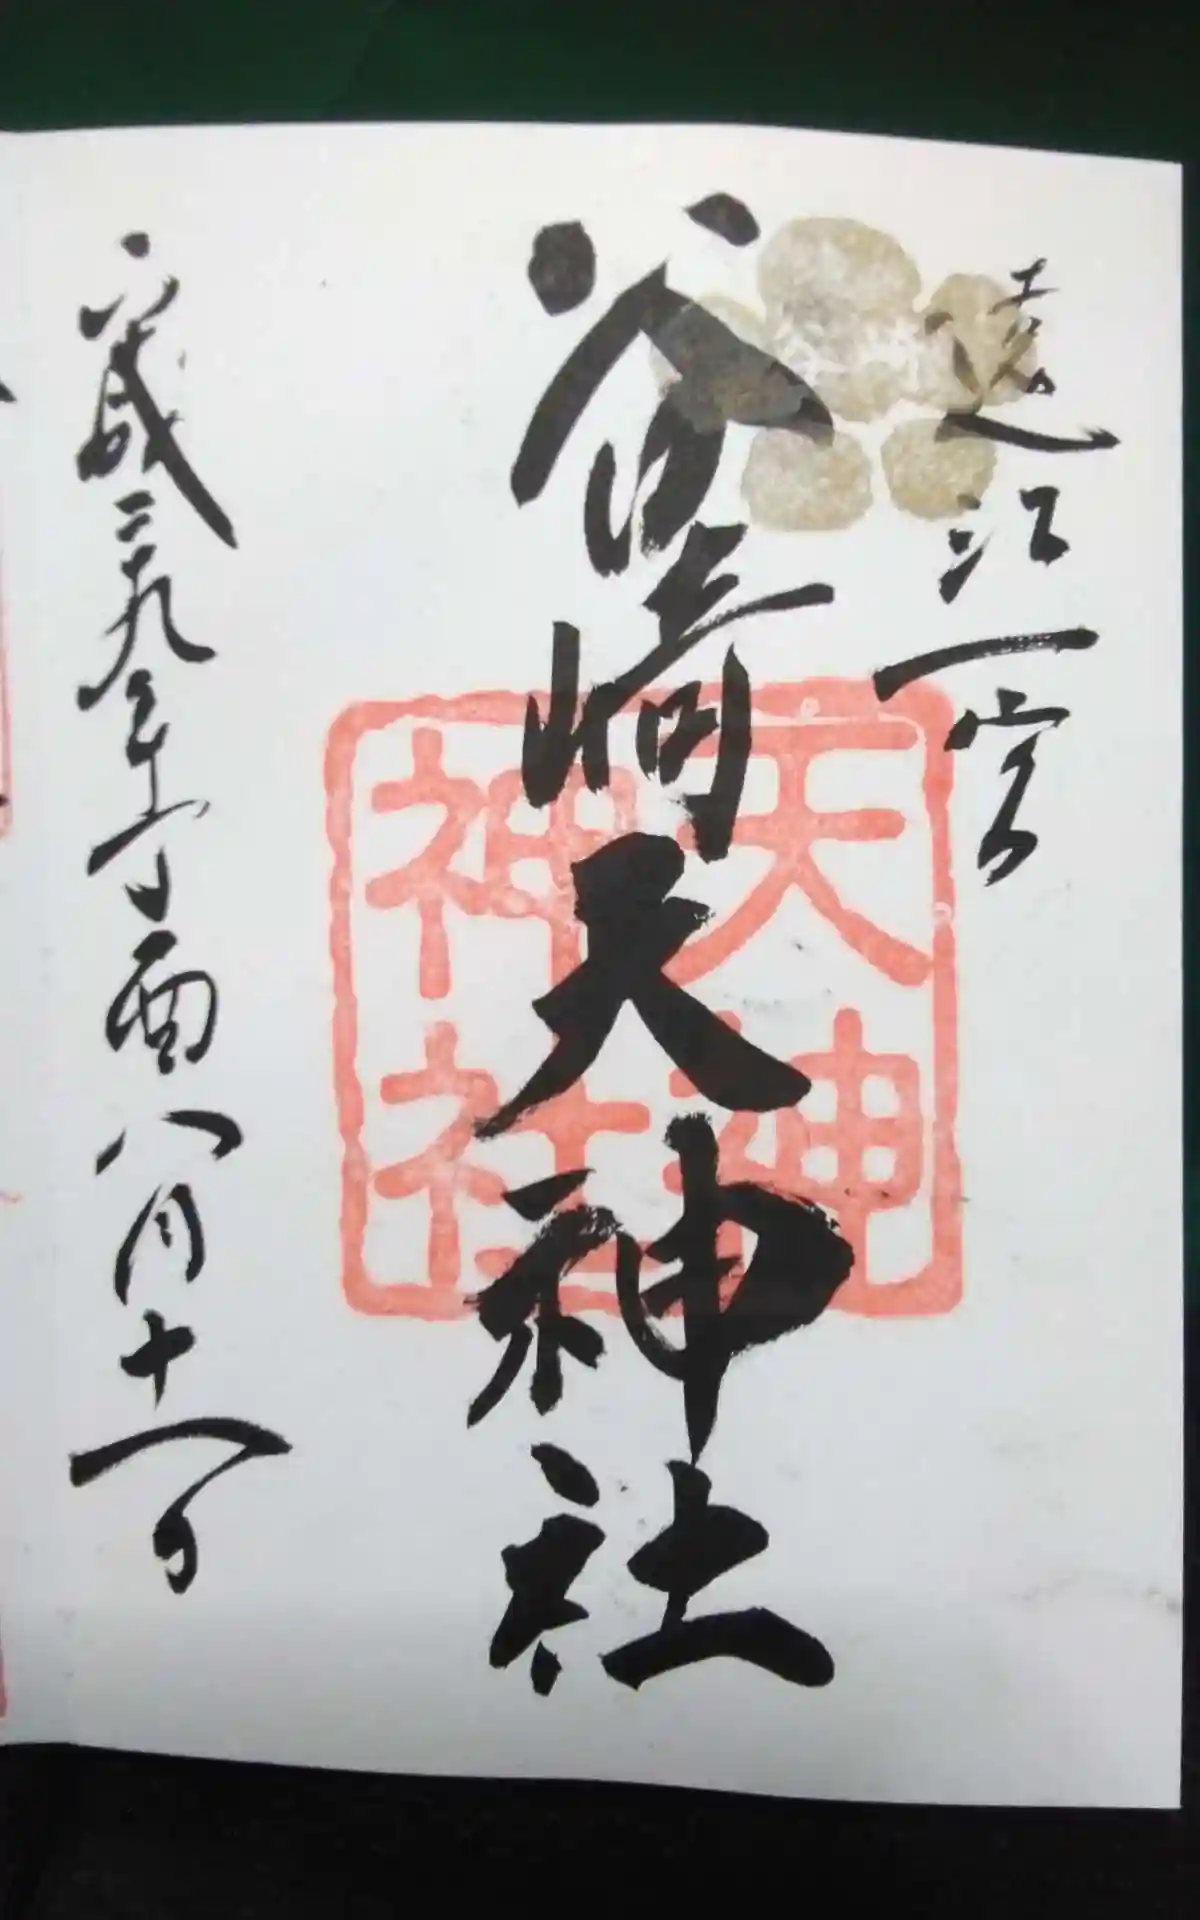 遠江一宮
谷崎天神社
天神
神社
平成二十九年丁酉八月十一日